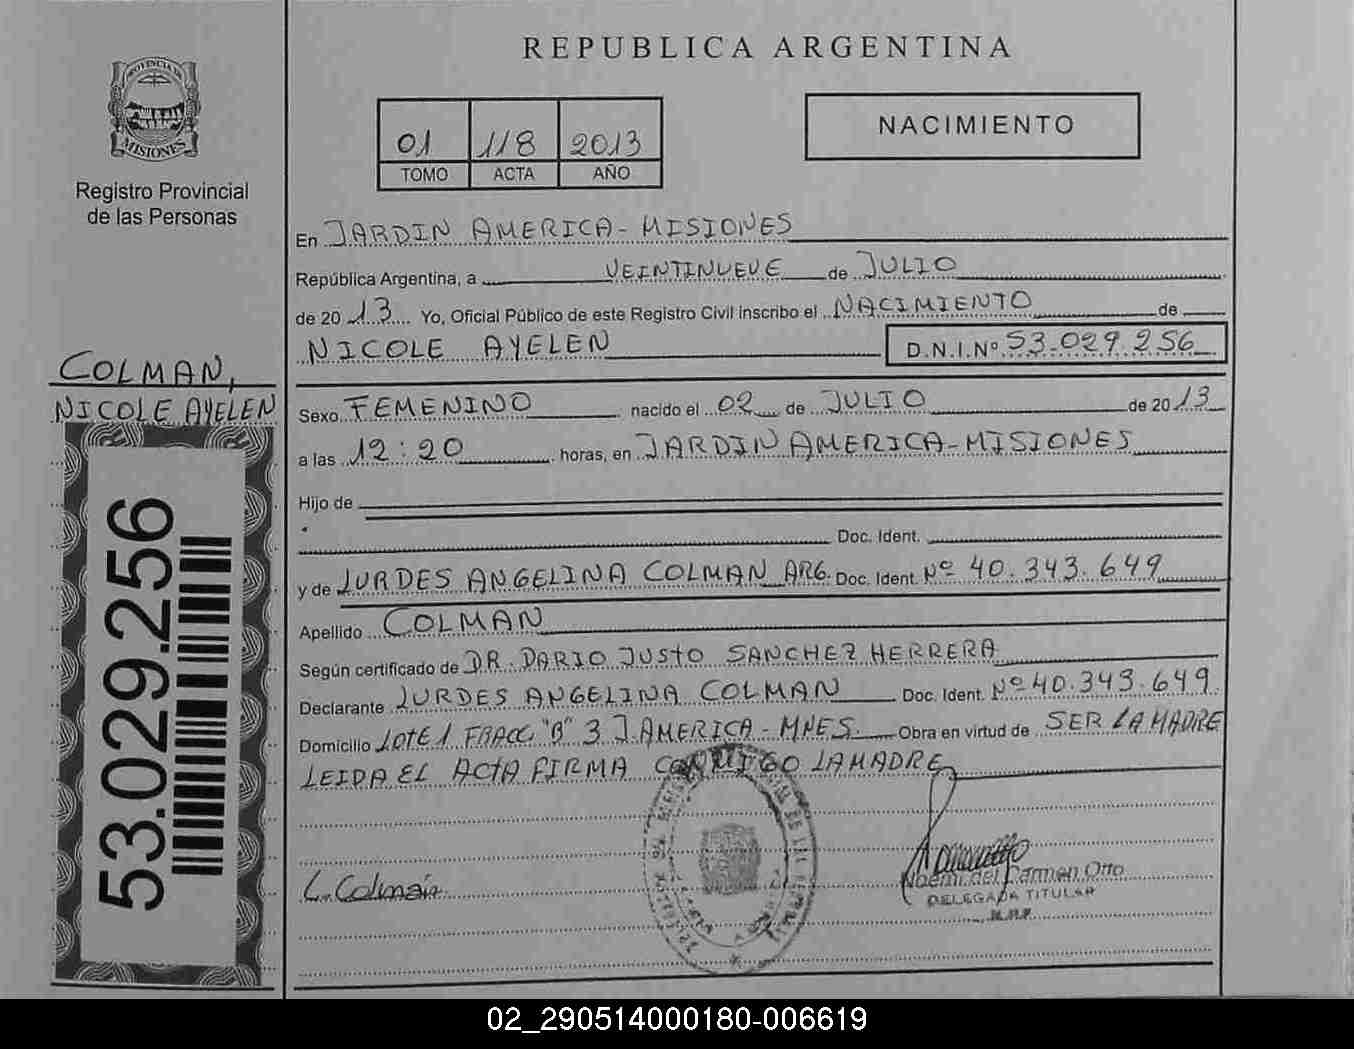 REPUBLICA ARGENTINA
PROVINCIA DE
MISIONES
Registro Provincial
de las Personas
01 118 2013
TOMO ACTA AÑO
NACIMIENTO
En JARDIN AMERICA - MISIONES
República Argentina, a VEINTINUEVE de JULIO
de 20 13 Yo, Oficial Público de este Registro Civil inscribo el NACIMIENTO de
NICOLE AYELEN D.N.I.Nº 53.029.256
COLMAN,
NICOLE AYELEN
53.029.256
Sexo FEMENINO nacido el 02 de JULIO de 20 13
a las 12:20 horas, en JARDIN AMERICA - MISIONES
Hijo de
Doc. Ident.
y de LURDES ANGELINA COLMAN ARG. Doc. Ident. Nº 40.343.649
Apellido COLMAN
Según certificado de DR. DARIO JUSTO SANCHEZ HERRERA
Declarante LURDES ANGELINA COLMAN Doc. Ident. Nº 40.343.649
Domicilio LOTE 1 FRACC "B" 3 J. AMERICA - MNES Obra en virtud de SER LA MADRE
LEIDA EL ACTA FIRMA CONMIGO LA MADRE
L. Colman
Noemi del Carmen Otto
DELEGADA TITULAR
02_290514000180-006619